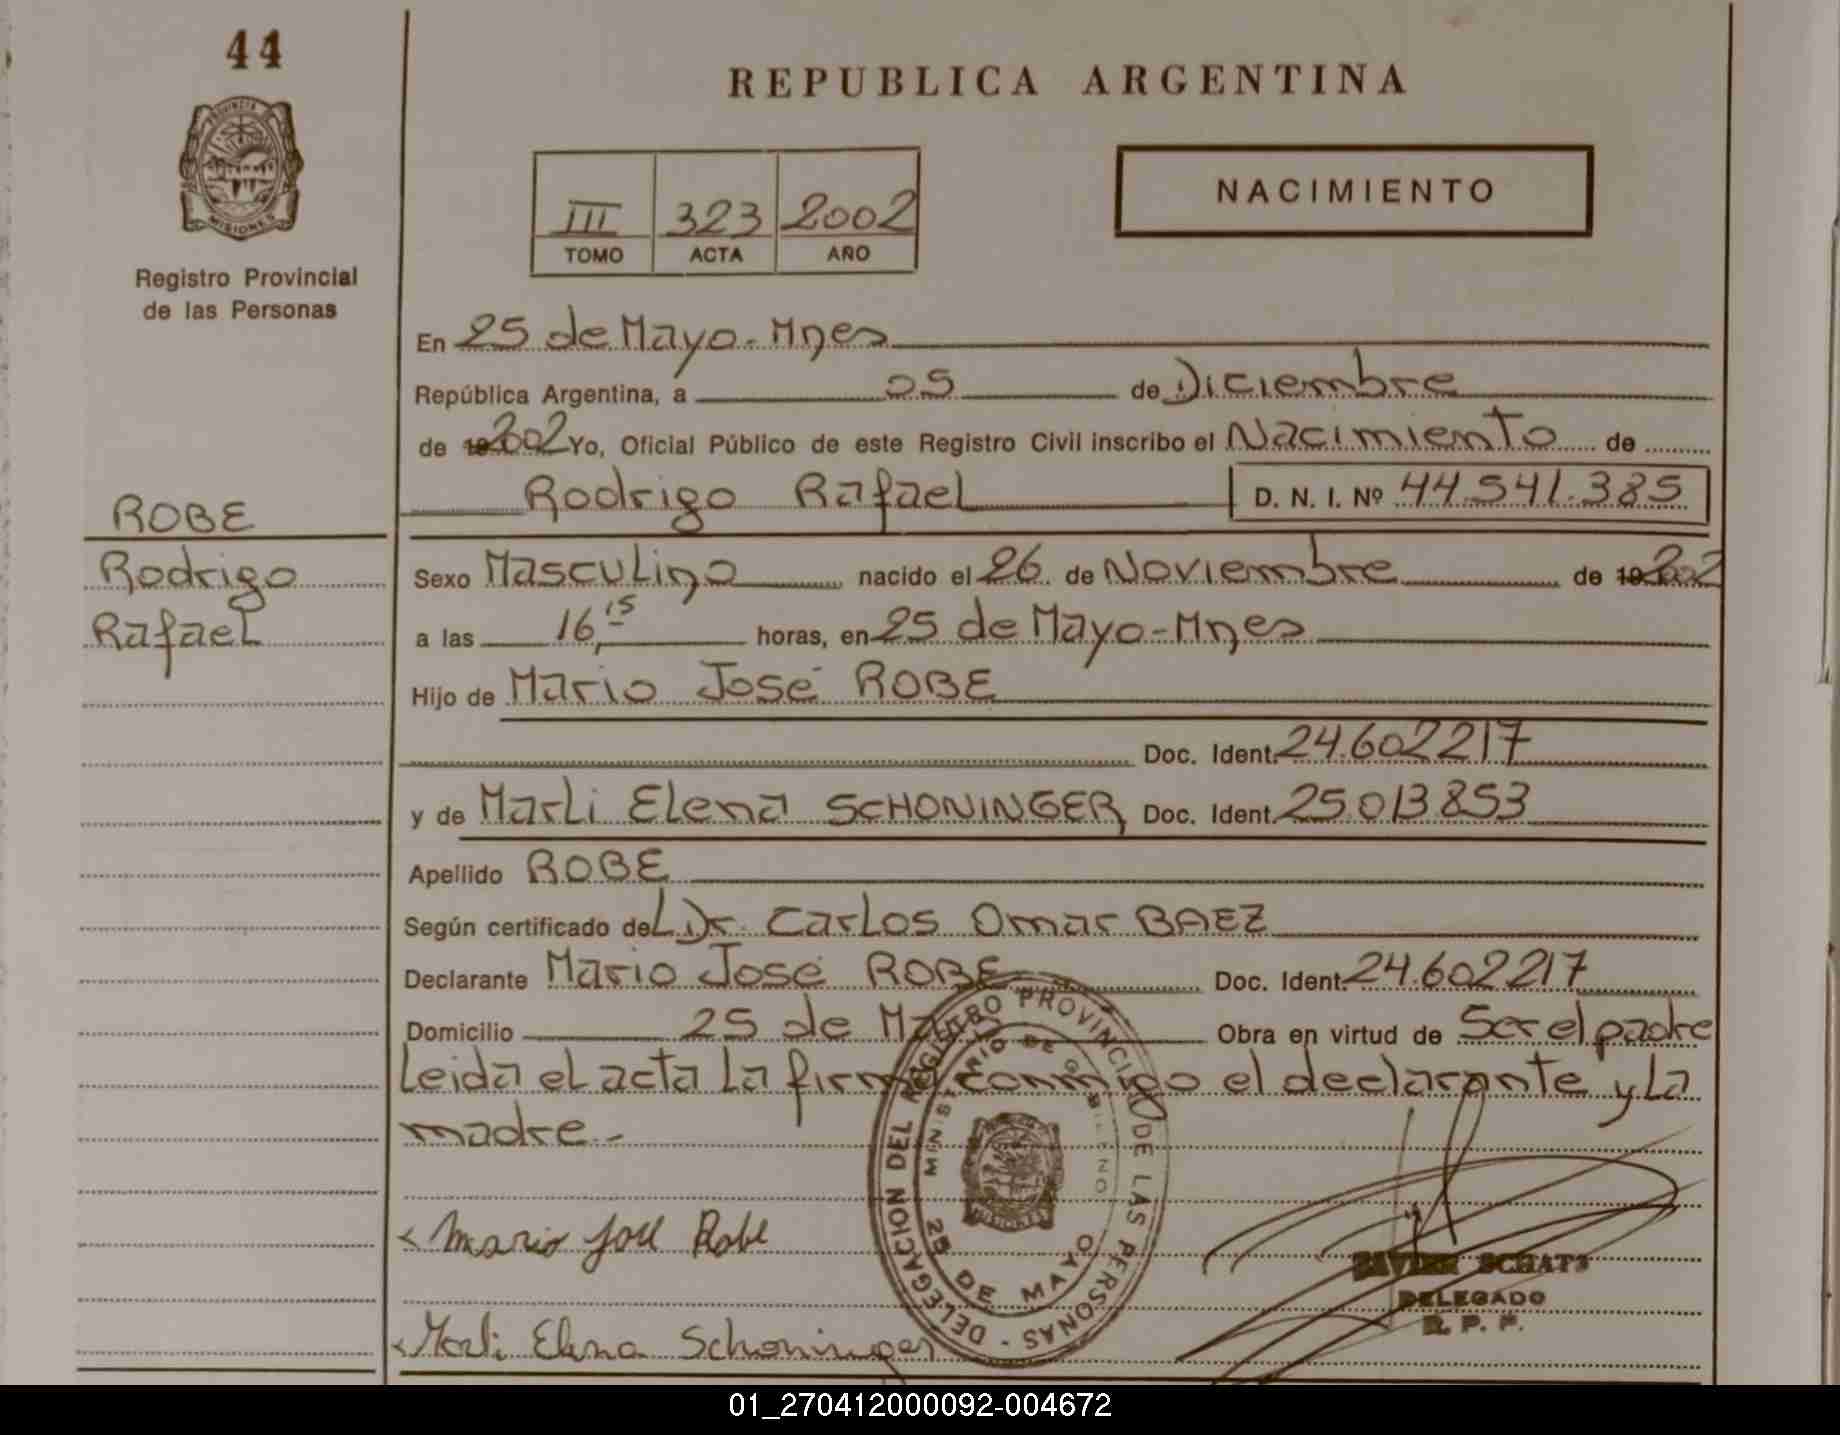 44
PROVINCIA
MISIONES
Registro Provincial
de las Personas
REPUBLICA ARGENTINA
III 323 2002
TOMO ACTA AÑO
NACIMIENTO
En 25 de Mayo - Mnes
República Argentina, a 05 de Diciembre
de 19 2002 Yo, Oficial Público de este Registro Civil inscribo el Nacimiento de
Rodrigo Rafael D. N. I. Nº 44.541.385
ROBE
Rodrigo
Rafael
Sexo Masculino nacido el 26 de Noviembre de 19 2002
a las 16,15 horas, en 25 de Mayo - Mnes
Hijo de Mario José ROBE
Doc. Ident. 24.602217
y de Marli Elena SCHONINGER Doc. Ident. 25.013853
Apellido ROBE
Según certificado del Dr. Carlos Omar BAEZ
Declarante Mario José ROBE Doc. Ident. 24.602217
Domicilio 25 de Mayo Obra en virtud de Ser el padre
Leida el acta la firma conmigo el declarante y la
madre.-
DELEGACION DEL REGISTRO PROVINCIAL DE LAS PERSONAS -
MINISTERIO DE GOBIERNO
MISIONES
25 DE MAYO
Mario José Robe
SCHATZ
DELEGADO
R. P. P.
Marli Elena Schoninger
01_270412000092-004672